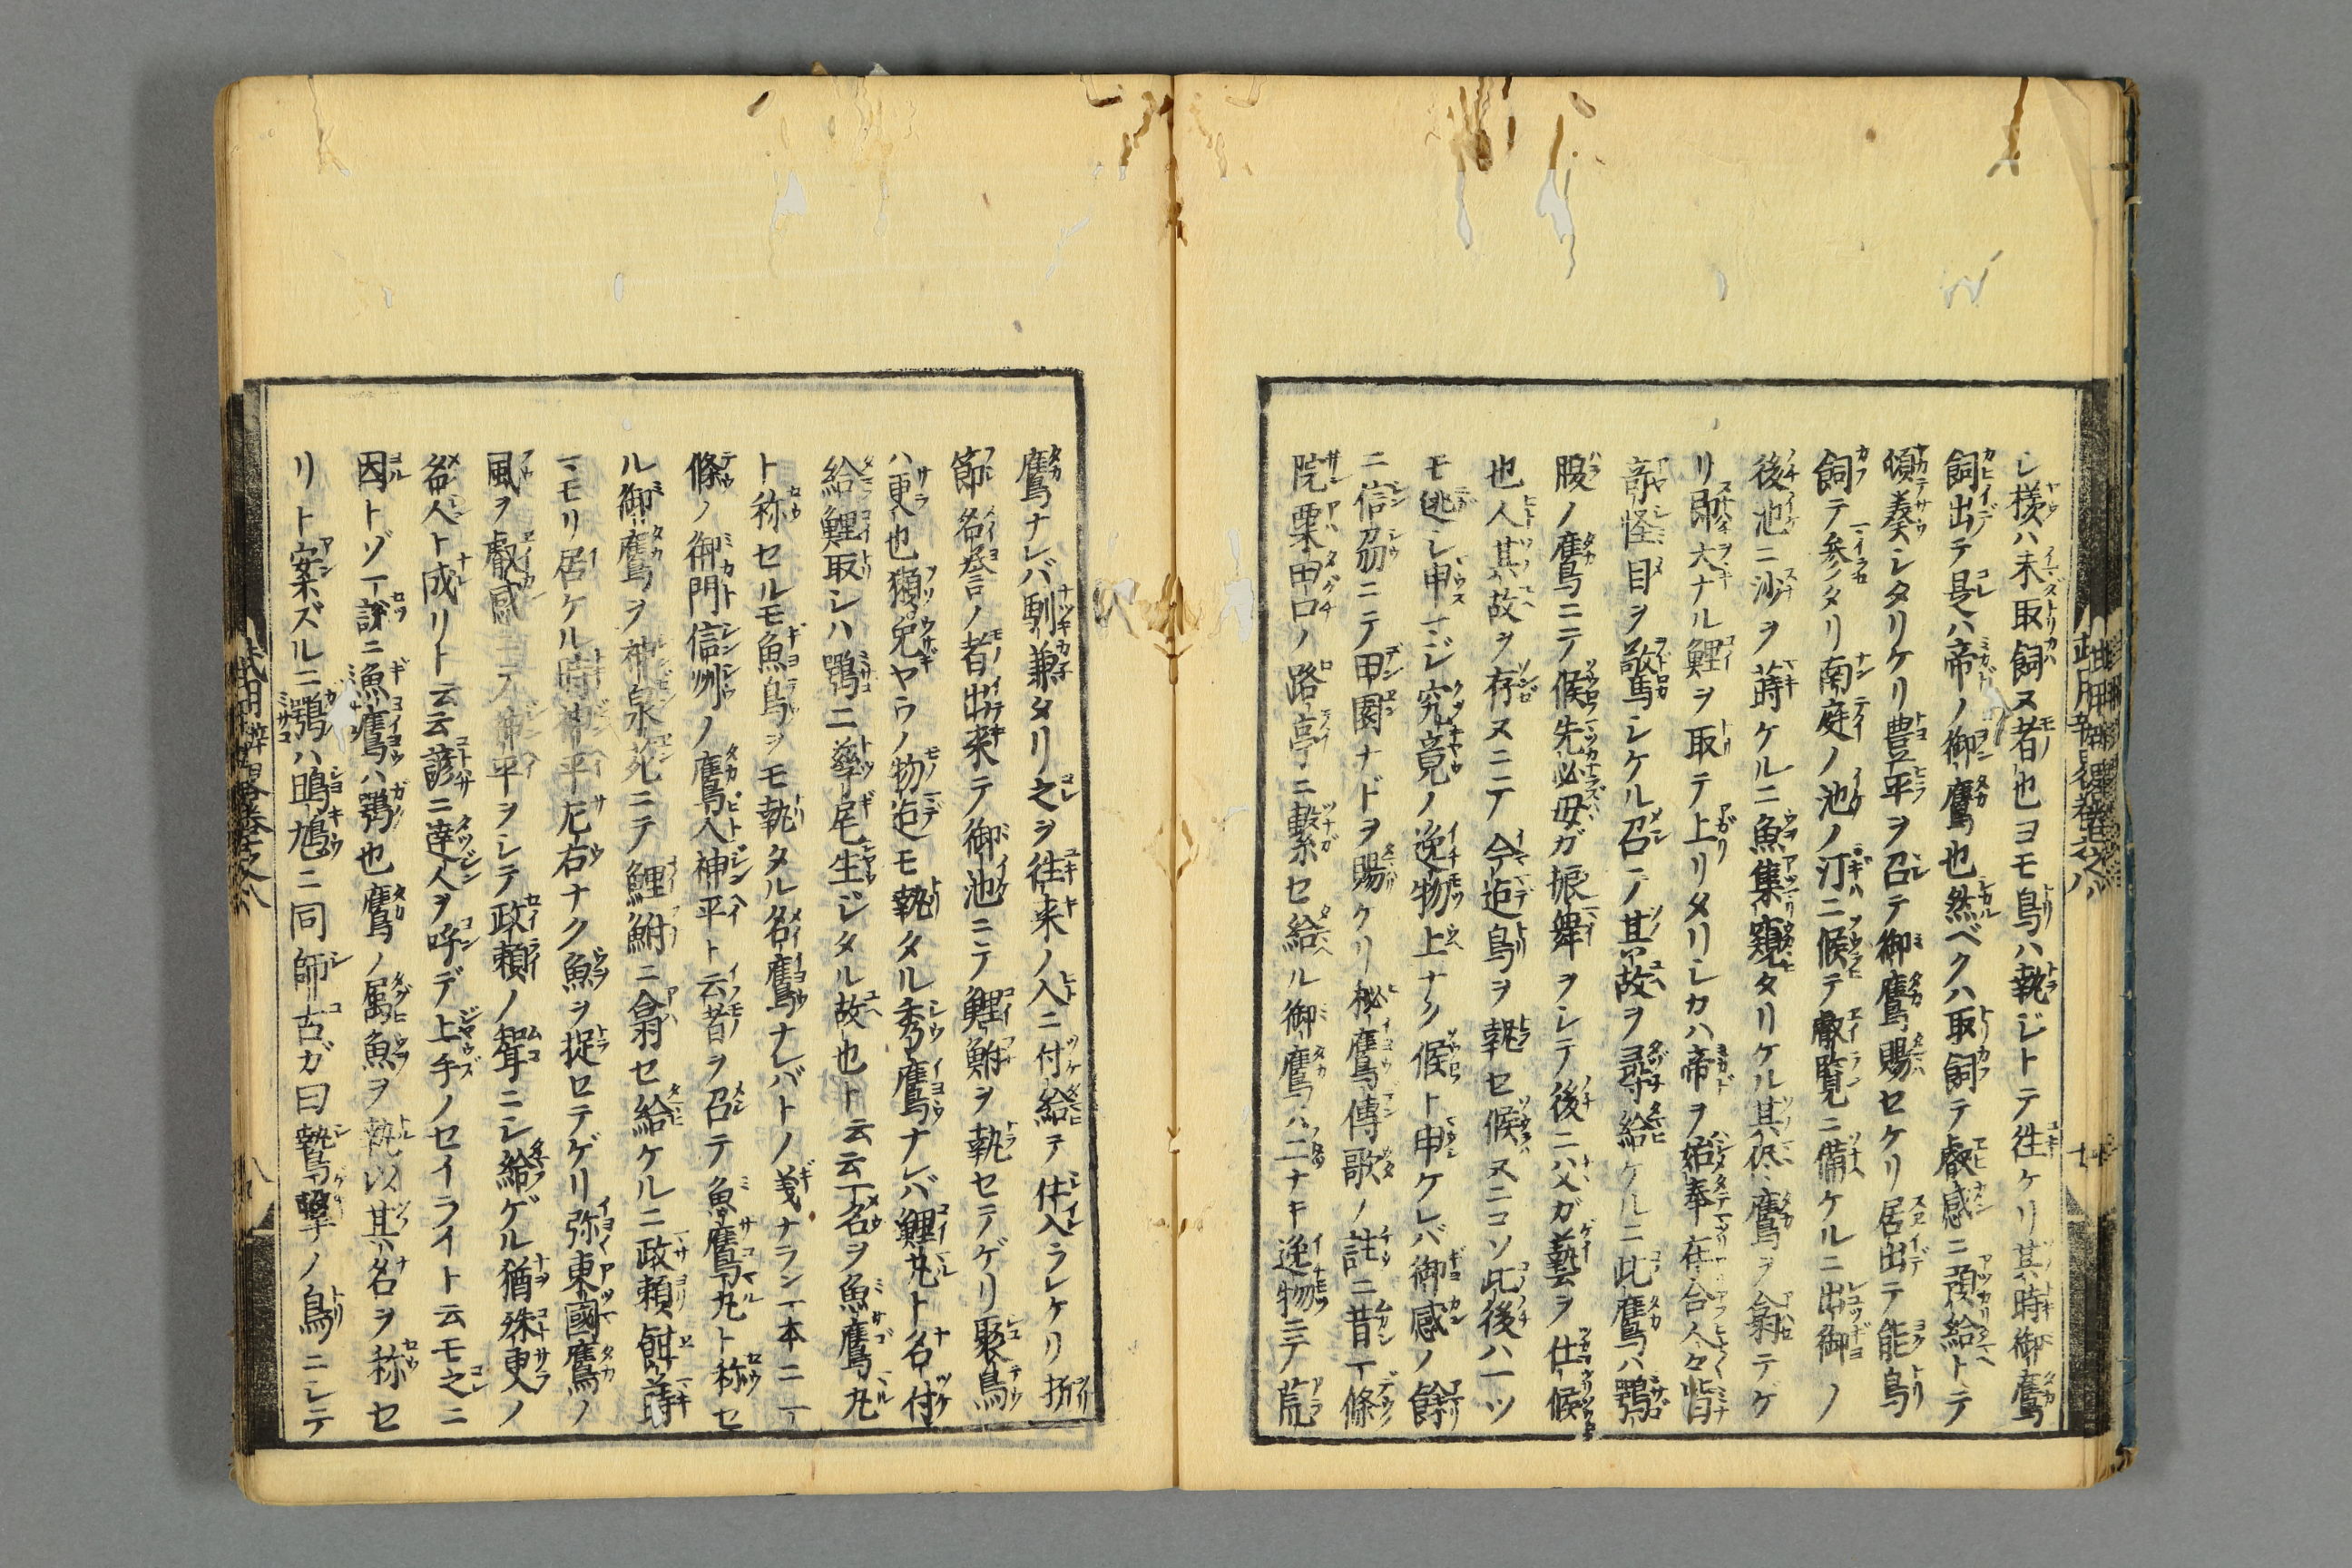 シ様ハ未取飼ヌ者也ヨモ鳥ハ執ジトテ往ケリ其時御鷹
飼出テ是ハ帝ノ御鷹也然ベクハ取飼テ叡感ニ預給トテ
頓奏シタリケリ豊平ヲ召テ御鷹賜セケリ居出テ能鳥
飼テ参タリ南庭ノ池ノ汀ニ候テ叡覧ニ備ケルニ出御ノ
後池ニ沙ヲ蒔ケルニ魚集窺タリケル其侭鷹ヲ翕テケ
リ即大ナル鯉ヲ取テ上リタリシカハ帝ヲ始奉在合人々皆
竒怪目ヲ驚シケル召テ其故ヲ尋給ケルニ此鷹ハ鶚
腹ノ鷹ニテ候先必母ガ振舞ヲシテ後ニハ父ガ藝ヲ仕候
也人其故ヲ存ヌニテ今迠鳥ヲ執セ候ヌニコソ此後ハ一ツ
モ逃シ申マジレ究竟ノ逸物上ナク候ト申ケレバ御感ノ餘
ニ信刕ニテ田園ナドヲ賜ケリ秘鷹傳歌ノ註ニ昔一條
院粟田口ノ路亭ニ繋セ給ル御鷹ハ二ナキ逸物ニテ荒
鷹ナレバ馴兼タリ之ヲ往来ノ人ニ付給ヲ仕入ラレケリ折
節名誉ノ者出来テ御池ニテ鯉鮒ヲ執セラゲリ聚鳥
ハ更也獺兎ヤウノ物迠モ執タル秀鷹ナレバ鯉丸ト名付
給鯉取シハ鶚ニ㝡尾生ジタル故也ト云云丁名ヲ魚鷹丸
ト称セルモ魚鳥ヲモ執タル名鷹ナレバトノ義ナラン一本ニ一
條ノ御門信州ノ鷹人神平ト云者ヲ召テ魚鷹丸ト称セ
ル御鷹ヲ神泉苑ニテ鯉鮒ニ翕セ給ケルニ政頼餌蒔
マモリ居ケル時神平左右ナク魚ヲ捉セテゲリ弥東國鷹ノ
風ヲ叡感 神平ヲシテ政頼ノ聟ニシ給ゲル猶殊更ノ
名人ト成リト云云諺ニ達人ヲ呼デ上手ノセイライト云モ之ニ
因トゾ一說ニ魚鷹ハ鶚也鷹ノ属魚ヲ執以其名ヲ称セ
リト案ズルニ鶚ハ鴡鳩ニ同師古ガ曰鷙擊ノ鳥ニシテ